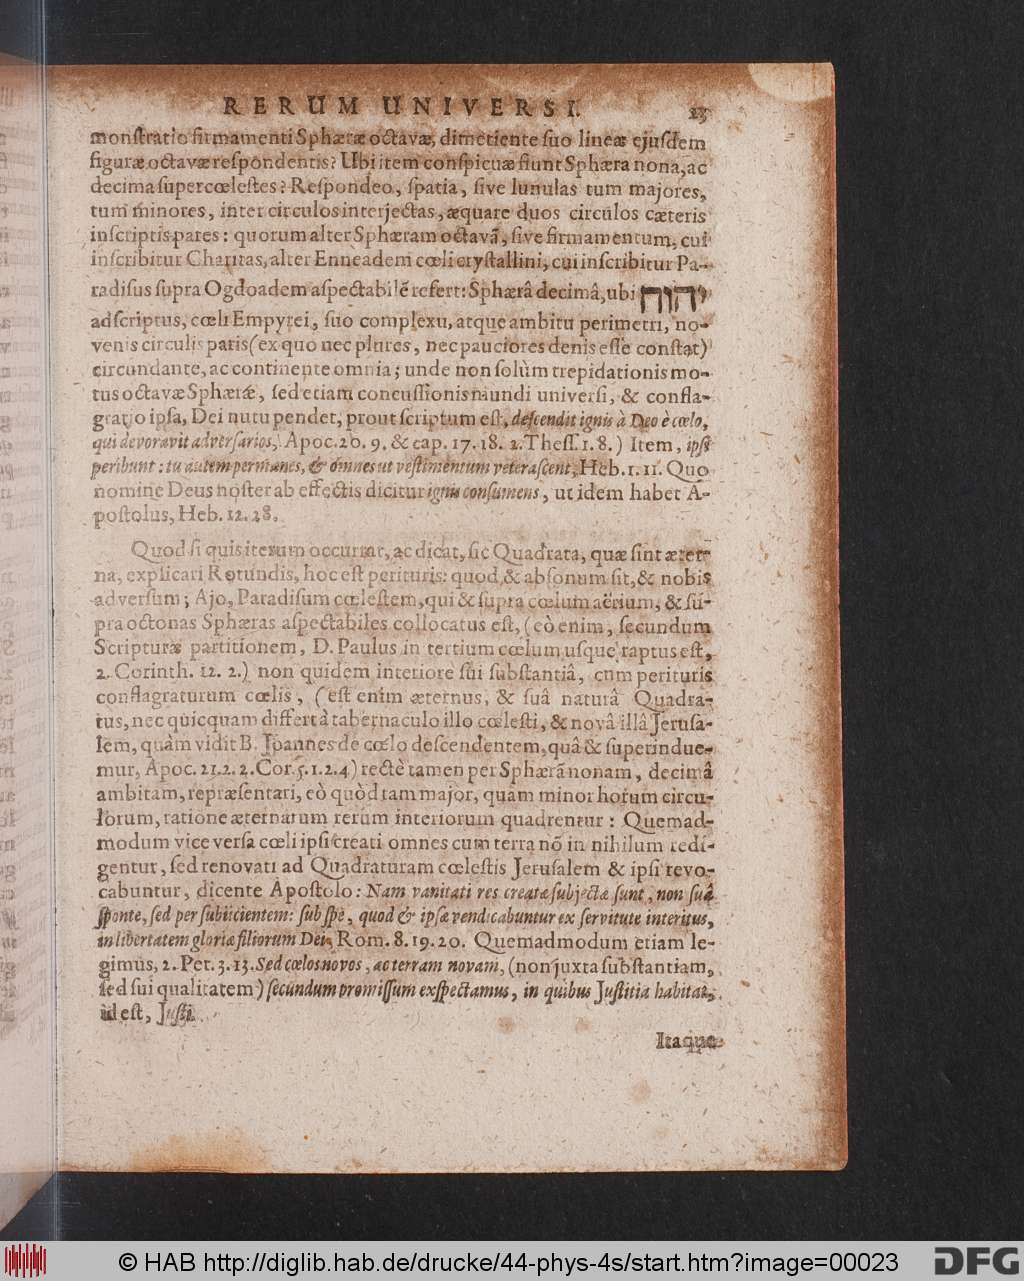 RERUM UNIVERSI. 23
monſtratio firmamenti Sphæræ octavæ, dimetiente ſuo lineæ ejuſdem
figuræ octavæ reſpondentis? Ubi item conſpicuæ fiunt Sphæra nona, ac
decima ſupercœleſtes? Reſpondeo, ſpatia, ſive lunulas tum majores,
tum minores, inter circulos interjectas, æquare duos circulos cæteris
inſcriptis pares: quorum alter Sphæram octavã, ſive firmamentum, cui
inſcribitur Charitas, alter Enneadem cœli cryſtallini, cui inſcribitur Pa-
radiſus ſupra Ogdoadem aſpectabilẽ refert: Sphærâ decimâ, ubi יהוה
adſcriptus, cœli Empyrei, ſuo complexu, atque ambitu perimetri, no-
venis circulis paris (ex quo nec plures, nec pauciores denis eſſe conſtat)
circundante, ac continente omnia; unde non ſolùm trepidationis mo-
tus octavæ Sphæræ, ſed etiam concuſſionis mundi univerſi, & confla-
gratio ipſa, Dei nutu pendet, prout ſcriptum eſt, deſcendit ignis à Deo è cœlo,
qui devoravit adverſarios, Apoc. 20. 9. & cap. 17. 18. 2. Theſſ. 1. 8.) Item, ipſi
peribunt: tu autem permanes, & omnes ut veſtimentum veteraſcent, Heb. 1. 11. Quo
nomine Deus noſter ab effectis dicitur ignis conſumens, ut idem habet A-
poſtolus, Heb. 12. 28.
Quod ſi quis iterum occurrat, ac dicat, ſic Quadrata, quæ ſint æter-
na, explicari Rotundis, hoc eſt perituris: quod & abſonum ſit, & nobis
adverſum; Ajo, Paradiſum cœleſtem, qui & ſupra cœlum aërium, & ſu-
pra octonas Sphæras aſpectabiles collocatus eſt, (eò enim, ſecundum
Scripturæ partitionem, D. Paulus in tertium cœlum uſque raptus eſt,
2. Corinth. 12. 2.) non quidem interiore ſui ſubſtantiâ, cum perituris
conflagraturum cœlis, (eſt enim æternus, & ſuâ naturâ Quadra-
tus, nec quicquam differt à tabernaculo illo cœleſti, & novâ illâ Jeruſa-
lem, quàm vidit B. Joannes de cœlo deſcendentem, quâ & ſuperindue-
mur, Apoc. 21. 2. 2. Cor. 5. 1. 2. 4) rectè tamen per Sphærã nonam, decimâ
ambitam, repræſentari, eò quòd tam major, quàm minor horum circu-
lorum, ratione æternarum rerum interiorum quadrentur: Quemad-
modum vice verſa cœli ipſi creati omnes cum terra nõ in nihilum redi-
gentur, ſed renovati ad Quadraturam cœleſtis Jeruſalem & ipſi revo-
cabuntur, dicente Apoſtolo: Nam vanitati res creatæ ſubjectæ ſunt, non ſuâ
ſponte, ſed per ſubiicientem: ſub ſpe, quod & ipſæ vendicabuntur ex ſervitute interitus,
in libertatem gloriæ filiorum Dei, Rom. 8. 19. 20. Quemadmodum etiam le-
gimus, 2. Pet. 3. 13. Sed cœlos novos, ac terram novam, (non juxta ſubſtantiam,
ſed ſui qualitatem) ſecundum promiſſum exſpectamus, in quibus Juſtitia habitat,
id eſt, Juſti.
Itaque
© HAB http://diglib.hab.de/drucke/44-phys-4s/start.htm?image=00023
DFG